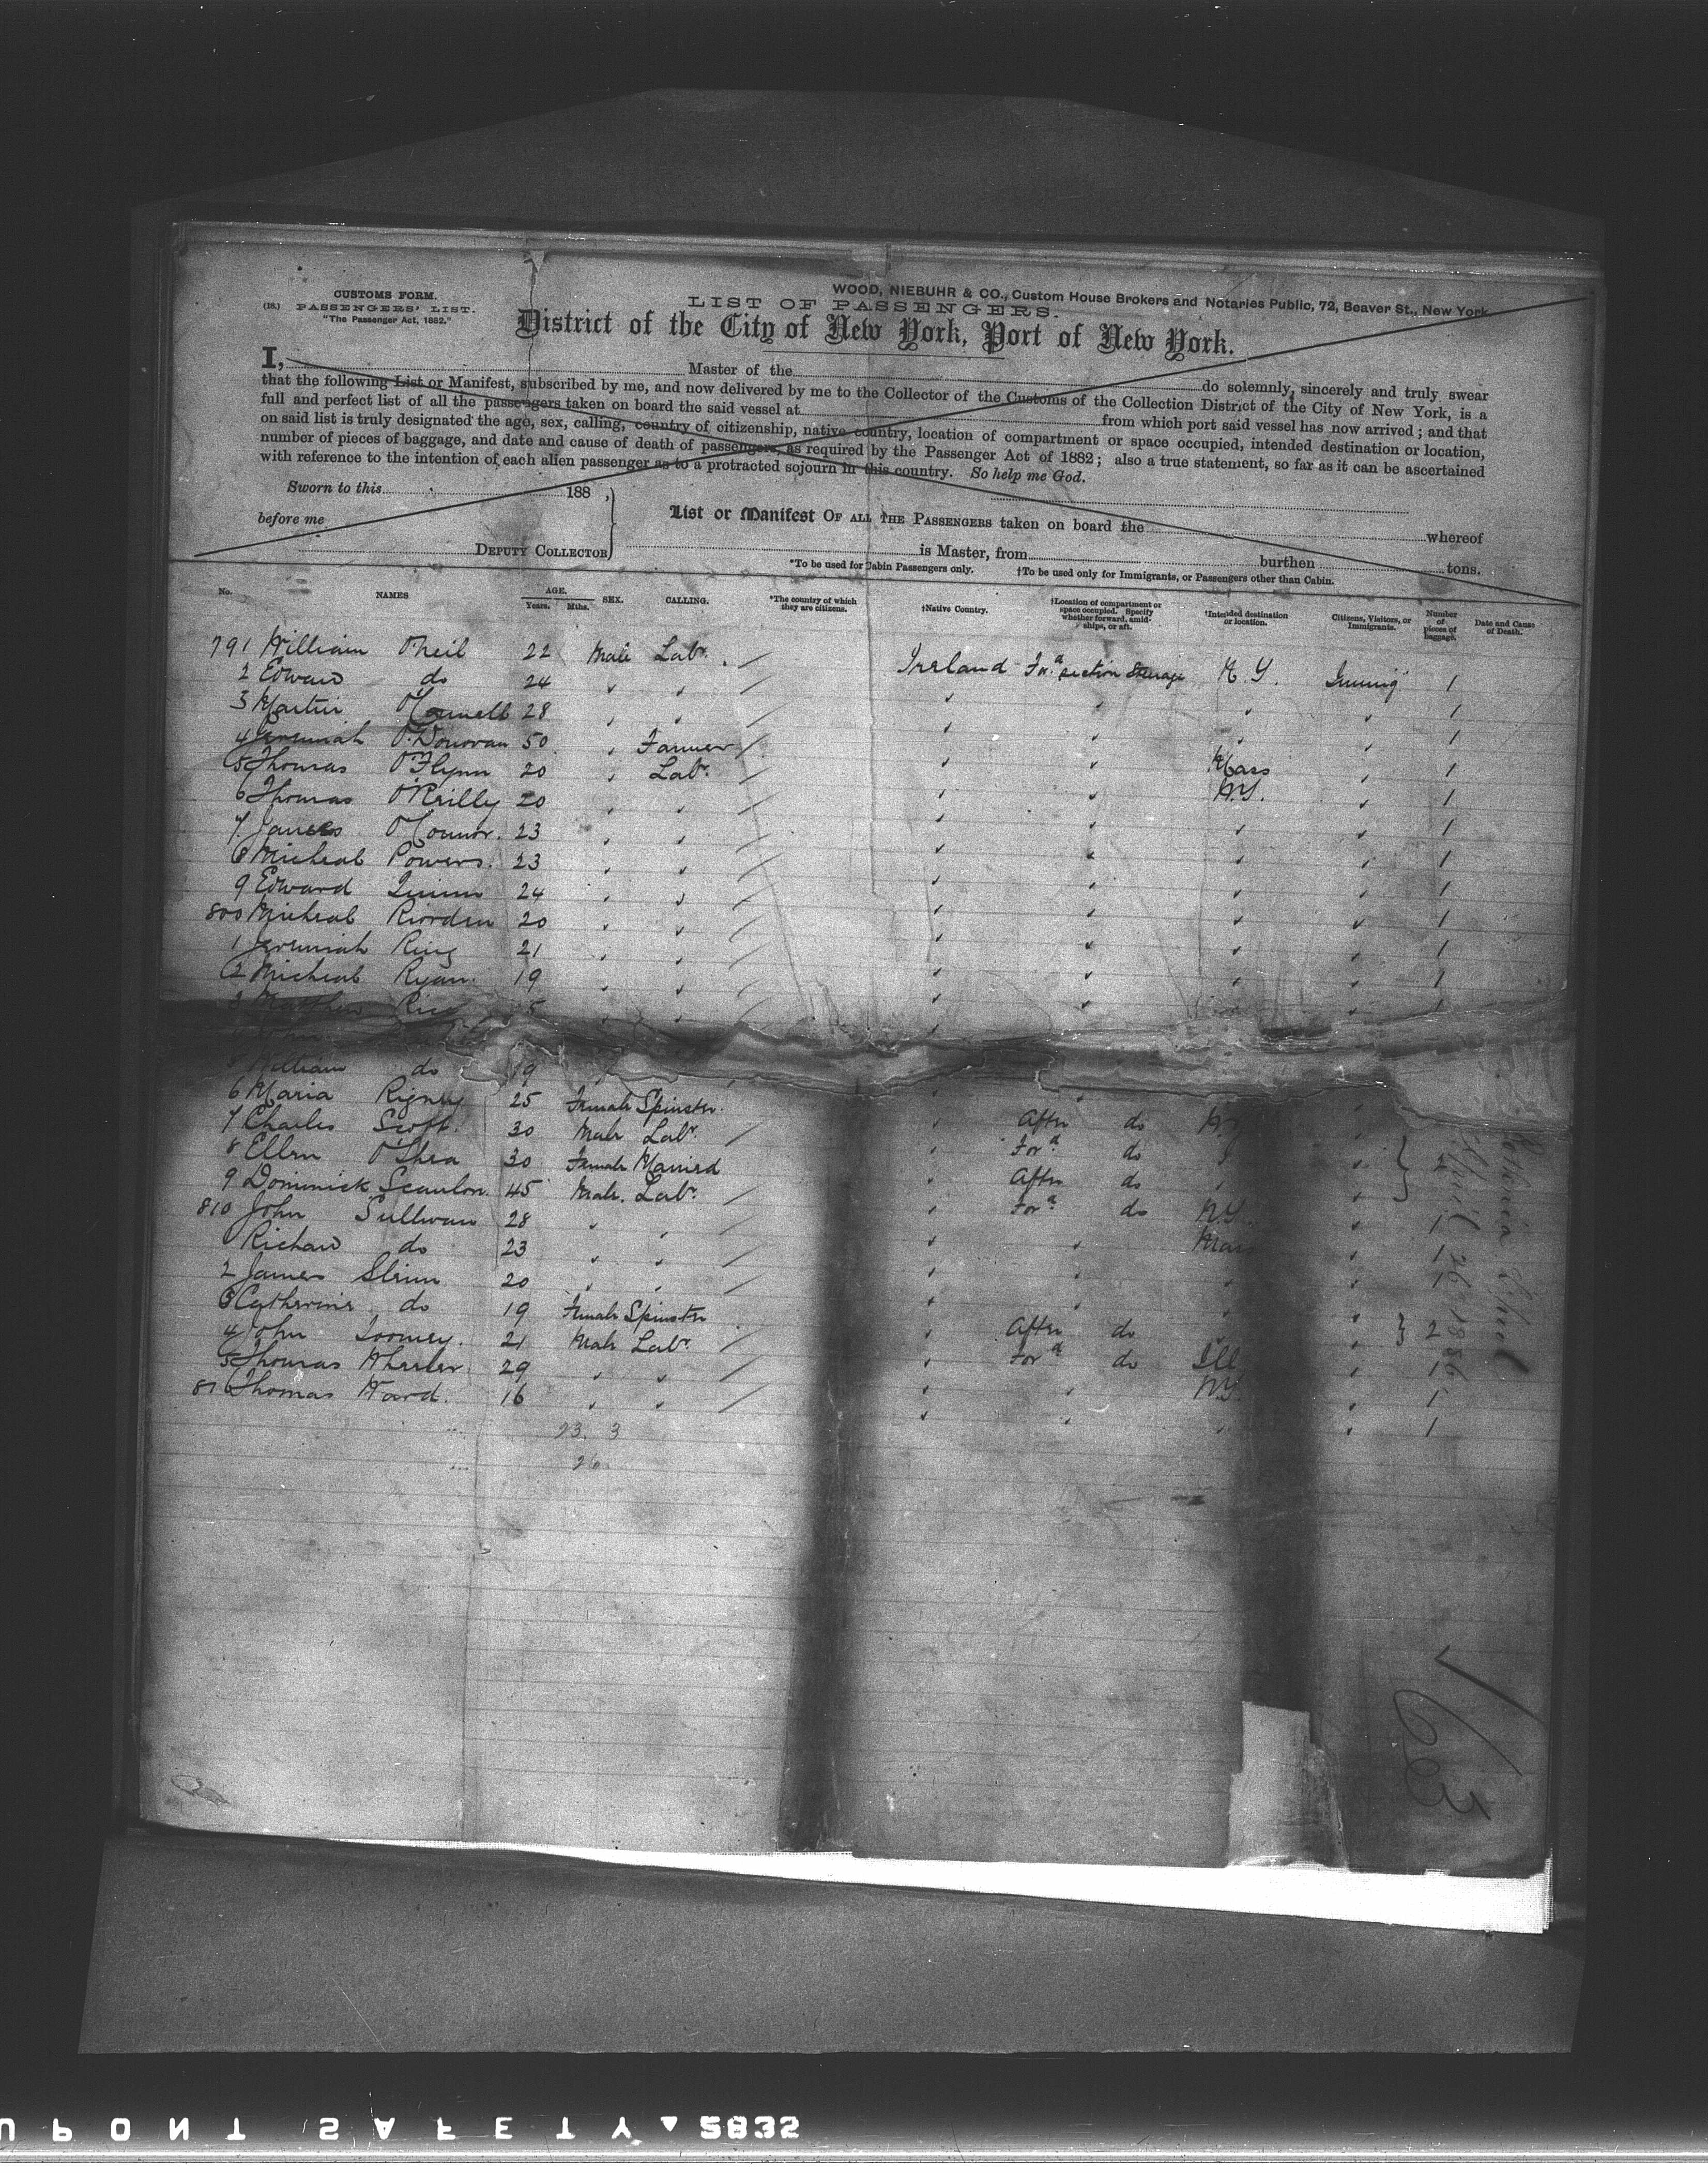 WOOD, NIEBUHR & CO., Custom House Brokers and Notaries Public, 72, Beaver St., New York
CUSTOMS FORM.
(18.) PASSENGERS' LIST.
"The Passenger Act, 1882."
LIST OF PASSENGERS.
District of the City of New York, Port of New York.
I, Master of the do solemnly, sincerely and truly swear
that the following List or Manifest, subscribed by me, and now delivered by me to the Collector of the Customs of the Collection District of the City of New York, is a
full and perfect list of all the passengers taken on board the said vessel at from which port said vessel has now arrived; and that
on said list is truly designated the age, sex, calling, country of citizenship, native country, location of compartment or space occupied, intended destination or location,
number of pieces of baggage, and date and cause of death of passengers, as required by the Passenger Act of 1882; also a true statement, so far as it can be ascertained
with reference to the intention of each alien passenger as to a protracted sojourn in this country. So help me God.
Sworn to this 188 ,
before me
DEPUTY COLLECTOR
List or Manifest OF ALL THE PASSENGERS taken on board the whereof
is Master, from burthen tons.
*To be used for Cabin Passengers only. †To be used only for Immigrants, or Passengers other than Cabin.
No. NAMES AGE. Years. Mths. SEX. CALLING. *The country of which they are citizens. †Native Country. †Location of compartment or space occupied. Specify whether forward, amidships, or aft. †Intended destination or location. Citizens, Visitors, or Immigrants. Number of pieces of baggage. Date and Cause of Death.
791 William O'Neil 22 Male Labr. Ireland For.d section Steerage N.Y. Immig 1
2 Edward do 24 1
3 Martin O'Connell 28 1
4 Jeremiah O'Donovan 50 Farmer Mass 1
5 Thomas O'Flynn 20 Labr. N.Y. 1
6 Thomas O'Reilly 20 1
7 James O'Connor. 23 1
8 Micheal Powers. 23 1
9 Edward Quinn 24 1
800 Micheal Riordan 20 1
1 Jeremiah Ring 21 1
2 Micheal Ryan 19 1
3 Matthew
William do 19
6 Maria Rigney 25 Female Spinster. After do
7 Charles Scott. 30 Male Labr. For.d do
8 Ellen O'Shea 30 Female Married After do
9 Dominick Scanlon. 45 Male. Labr. For.d do N.Y.
810 John Sullivan 28 Mass 1
Richard do 23 1
2 James Slevin 20 1
3 Catherine do 19 Female Spinster After do 2
4 John Toomey. 21 Male Labr. For.d do Ill 1
5 Thomas Wheeler. 29 N.Y. 1
816 Thomas Ward. 16 1
23. 3
26
April 26 1886
UPONT SAFETY 2835